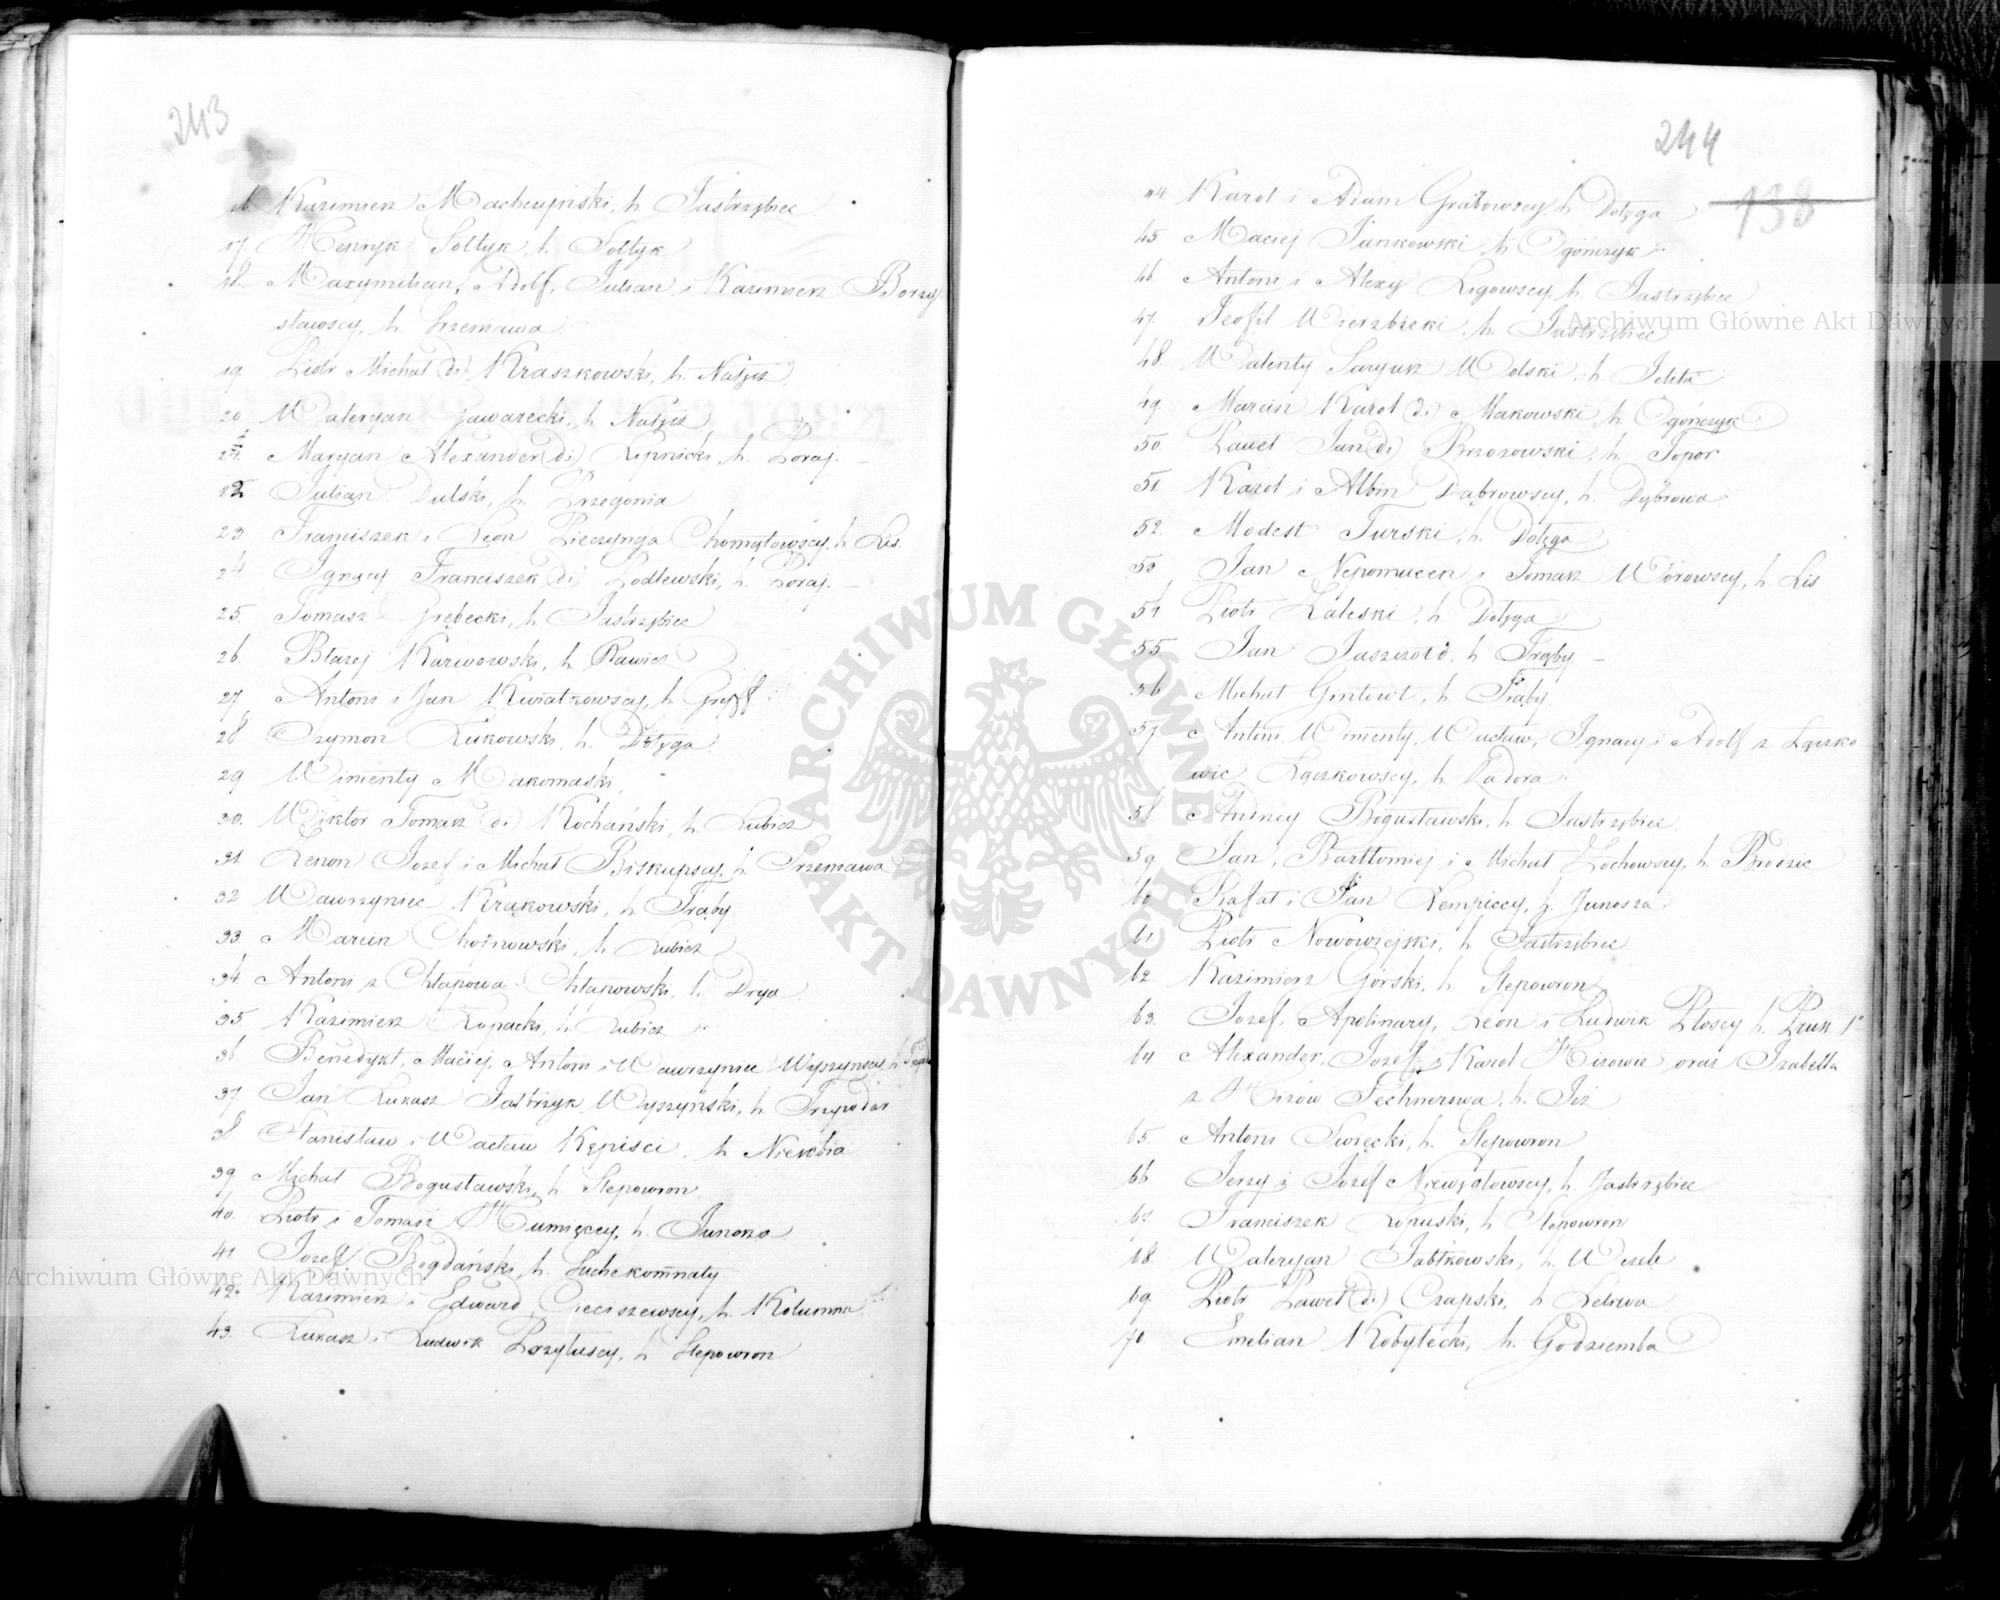 243
16. Kazimierz Machczyński, h. Jastrzębiec
17. Henryk Sołtyk, h. Sołtyk
18. Maxymilian, Adolf, Julian i Kazimierz Borzy
sławscy, h. Srzeniawa
19. Piotr Michał (2i) Kraszkowski, h. Nałęcz
20. Waleryan Gawarecki, h. Nałęcz
21. Maryan Alexander (2i) Lipnicki, h. Poraj.
22 Julian Dulski, h. Przegonia
23 Franciszek i Leon Pieczynga Chomętowscy, h. Lis.
24 Ignacy Franciszek (2i) Podlewski, h. Poraj.
25. Tomasz Grębecki, h. Jastrzębiec
26 Błażej Karwowski, h. Rawicz
27 Antoni i Jan Kwiatkowscy, h. Gryff
28 Szymon Żukowski, h. Dołęga
29 Wincenty Makomaski,
30. Wiktor Tomasz (2i) Kochański, h. Lubicz
31. Zenon Jozef i Michał Biskupscy, h. Srzeniawa
32 Wawrzyniec Krąkowski, h. Trąby
33. Marcin Chojnowski, h. Lubicz
34. Antoni z Chłapowa Chłapowski, h. Drya
35 Kazimierz Łopacki, h. Lubicz
36. Benedykt, Maciej, Antoni i Wawrzyniec Wyszyńscy, h.
37. Jan Łukasz Jastrzyk Wyszyński, h. Trzywdar
38. Stanisław i Wacław Kępiscı, h. Niezobia
39. Michał Bogusławski, h. Slepowron
40. Piotr i Tomasz Humięccy, h. Junosza
41 Jozef Bogdański, h. Suchekomnaty
42. Kazimierz i Edward Cieciszewscy, h. Kolumna
43. Łukasz i Ludwik Przyłuscy, h. Slepowron
244
138
44 Karol i Adam Grabowscy, h. Dołęga
45. Maciej Jankowski, h. Ogończyk
46 Antoni i Alexy Ligowscy, h. Jastrzębiec
47. Teofil Wierzbicki, h. Jastrzębiec
48. Walenty Saryusz Wolski, h. Jelita
49. Marcin Karol (2i) Makowski, h. Ogończyk
50. Paweł Jan (2i) Brzozowski, h. Topor
51. Karol i Albin Dąbrowscy, h. Dąbrowa
52. Modest Turski, h. Dołęga
53 Jan Nepomucen i Tomasz Worowscy, h. Lis
54 Piotr Zaleski, h. Dołęga
55 Jan Jaszczołd, h. Trąby
56 Michał Gintowt, h. Trąby
57 Antoni Wincenty, Wacław, Ignacy i Adolf z Łączko
wic Łączkowscy, h. Zadora
58. Andrzey Bogusławski, h. Jastrzębiec
59. Jan, Bartłomiej i Michał Żochowscy, h. Brodzic
60 Rafał i Jan Lempiccy, h. Junosza
61 Piotr Nowowiejski, h. Jastrzębiec
62 Kazimierz Górski, h. Slepowron
63. Jozef, Apolinary, Leon i Ludwik Płoscy h. Prus 1°
64 Alexander, Jozef i Karol Hizowie oraz Izabella
z Hizów Technerowa, h. Jeż
65. Antoni Święcki, h. Slepowron
66 Jerzy i Jozef Niewęgłowscy, h. Jastrzębiec
67. Franciszek Łopuski, h. Slepowron
68. Waleryan Jabłkowski, h. Wczele
69. Piotr Paweł (2i) Czapski, h. Leliwa
70. Emelian Kobyłecki, h. Godziemba
Archiwum Główne Akt Dawnych
Archiwum Główne Akt Dawnych
ARCHIWUM GŁÓWNE AKT DAWNYCH